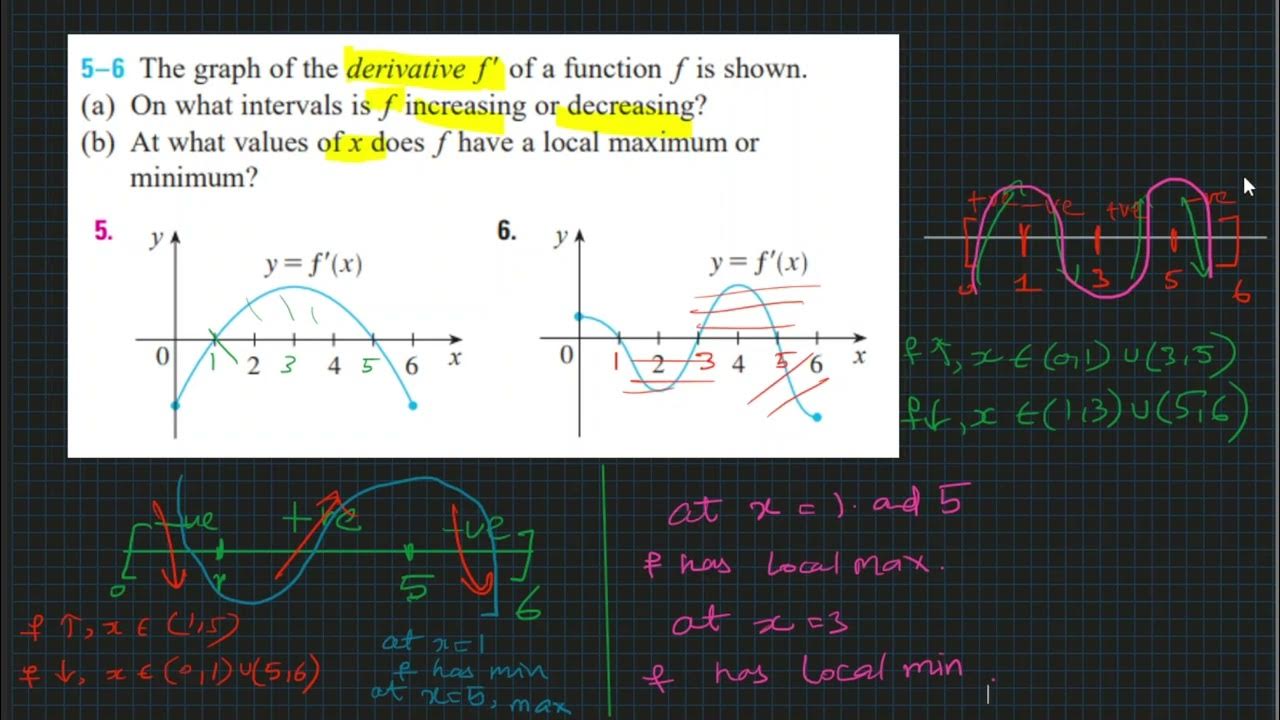 5–6 The graph of the derivative f′ of a function f is shown.
(a) On what intervals is f increasing or decreasing?
(b) At what values of x does f have a local maximum or
minimum?
5.
y
y = f′(x)
0 1 2 3 4 5 6 x
6.
y
y = f′(x)
0 1 2 3 4 5 6 x
+ve -ve +ve -ve
[ 0 1 3 5 6 ]
f ↑, x ∈ (0,1) ∪ (3,5)
f ↓, x ∈ (1,3) ∪ (5,6)
-ve +ve -ve
[ 0 1 5 6 ]
f ↑, x ∈ (1,5)
f ↓, x ∈ (0,1) ∪ (5,6)
at x=1
f has min
at x=5, max
at x = 1. and 5
f has local max.
at x = 3
f has local min.